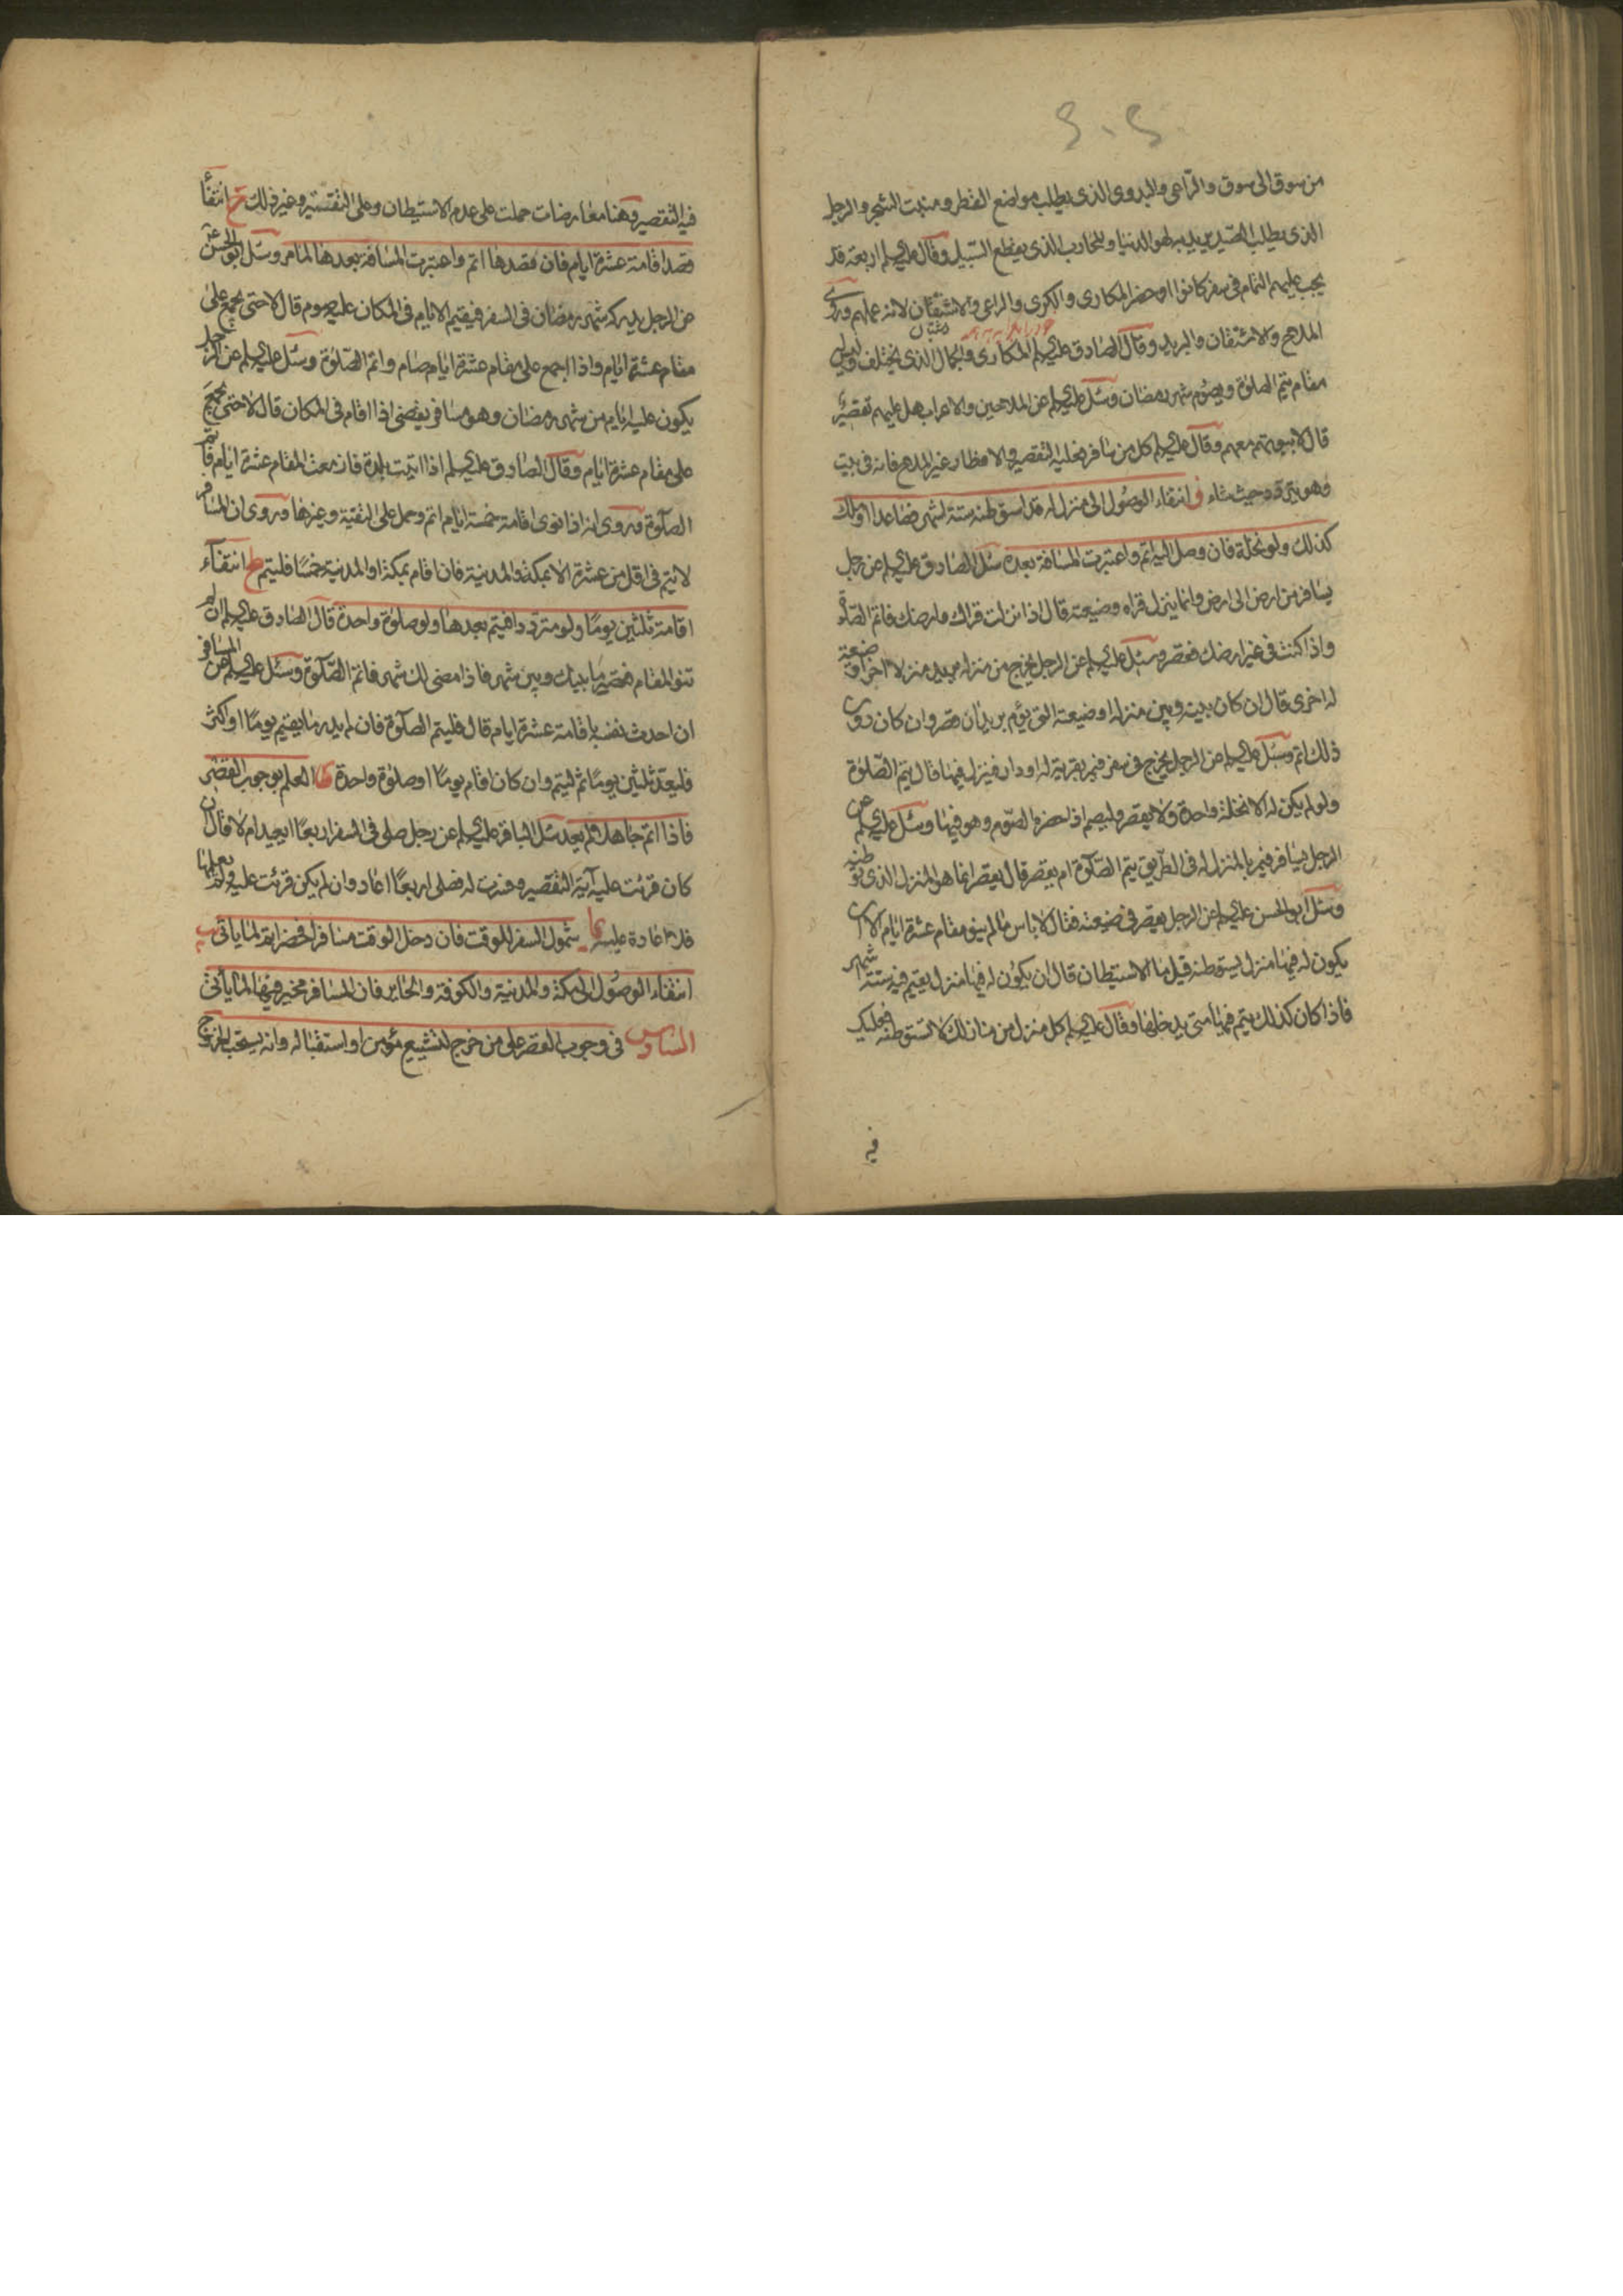 من سوق الى سوق والراعى والبدوى الذى يطلب مواضع القطر ومنبت الشجر والرجل
الذى يطلب الصيد يريد به لهو الدنيا والمحارب الذى يقطع السبيل وقال عليه السلم اربعة قد
يجب عليهم التمام فى سفر كانوا او حضر المكارى والكرى والراعى والاشتقان لانه عملهم وروى
الملاح والاشتقان والبريد وقال الصادق عليه السلم المكارى والجمال الذى يختلف وليس له
مقام يتم الصلوة ويصوم شهر رمضان وسئل عليه السلم عن الملاحين والاعراب هل عليهم تقصير
قال لا بيوتهم معهم وقال عليه السلم كل من سافر فعليه التقصير والافطار غير الملاح فانه فى بيت
وهو يتردد حيث شاء ز انتفاء الوصول الى منزل له قد استوطنه ستة اشهر فصاعدا او ملك
كذلك ولو نخلة فان وصل اليه اتم واعتبرت المسافة بعده سئل الصادق عليه السلم عن رجل
يسافر من ارض الى ارض وانما ينزل قراه وضيعته قال اذا نزلت قراك وارضك فاتم الصلوة
واذا كنت فى غير ارضك فقصر وسئل عليه السلم عن الرجل يخرج من منزله يريد منزلا اخر او ضيعة
له اخرى قال ان كان بينه وبين منزله او ضيعته التى يؤم بريدان قصر وان كان دون
ذلك اتم وسئل عليه السلم عن الرجل يخرج فى سفر فيمر بقرية له او دار فينزل فيها قال يتم الصلوة
ولو لم يكن له الا نخلة واحدة ولا يقصر وليصم اذا حضره الصوم وهو فيها وسئل عليه السلم عن
الرجل يسافر فيمر بالمنزل له فى الطريق يتم الصلوة ام يقصر قال يقصر انما هو المنزل الذى توطنه
وسئل ابو الحسن عليه السلم عن الرجل يقصر فى ضيعته فقال لا باس ما لم ينو مقام عشرة ايام الا ان
يكون له فيها منزل يستوطنه قيل ما الاستيطان قال ان يكون له فيها منزل يقيم فيه ستة اشهر
فاذا كان كذلك يتم فيها متى يدخلها وقال عليه السلم كل منزل من منازلك لا تستوطنه فعليك
فيه
فيه التقصير وهنا معارضات حملت على عدم الاستيطان وعلى التقية وغير ذلك ح انتفاء
قصد اقامة عشرة ايام فان قصدها اتم واعتبرت المسافة بعدها لما مر وسئل ابو الحسن ع
عن الرجل يدركه شهر رمضان فى السفر فيقيم الايام فى المكان عليه صوم قال لا حتى يجمع على
مقام عشرة ايام واذا اجمع على مقام عشرة ايام صام واتم الصلوة وسئل عليه السلم عن الرجل
يكون عليه ايام من شهر رمضان وهو مسافر يقضى اذا اقام فى المكان قال لا حتى يجمع
على مقام عشرة ايام وقال الصادق عليه السلم اذا اتيت بلدة فازمعت المقام عشرة ايام فاتم
الصلوة وروى انه اذا نوى اقامة خمسة ايام اتم وحمل على التقية وغيرها وروى ان المسافر
لا يتم فى اقل من عشرة الا بمكة والمدينة فان اقام بمكة او المدينة خمسا فليتم ط انتفاء
اقامة ثلثين يوما ولو مترددا فيتم بعدها ولو صلوة واحدة قال الصادق عليه السلم ان لم
تنو المقام فقصر ما بينك وبين شهر فاذا مضى لك شهر فاتم الصلوة وسئل عليه السلم عن المسافر
ان احدث نفسه باقامة عشرة ايام قال فليتم الصلوة فان لم يدر ما يقيم يوما او اكثر
فليعد ثلثين يوما ثم ليتم وان كان اقام يوما او صلوة واحدة العلم بوجوب القصر
فاذا اتم جاهلا لم يعد سئل الباقر عليه السلم عن رجل صلى فى السفر اربعا ايعيد ام لا قال ان
كان قرئت عليه آية التقصير وفسرت له فصلى اربعا اعاد وان لم يكن قرئت عليه ولم يعلمها
فلا اعادة عليه يا شمول السفر للوقت فان دخل الوقت مسافرا فحضر اتم لما ياتى يب
انتفاء الوصول الى مكة والمدينة والكوفة والحاير فان المسافر مخير فيها لما ياتى
السادس فى وجوب القصر على من خرج لتشييع مؤمن او استقباله وانه يستحب الخروج